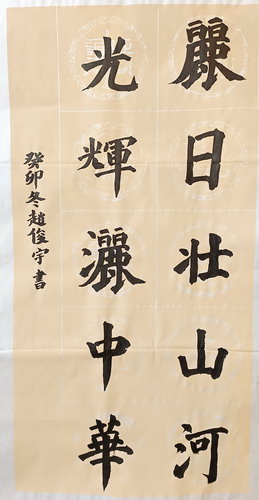 麗日壯山河
光輝灑中華
癸卯冬趙俊宇書